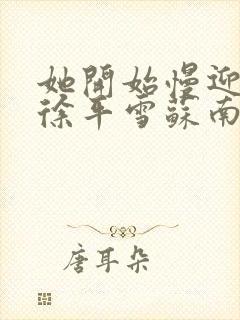 她開始慢迎
徐平雪蘇南
唐耳朵